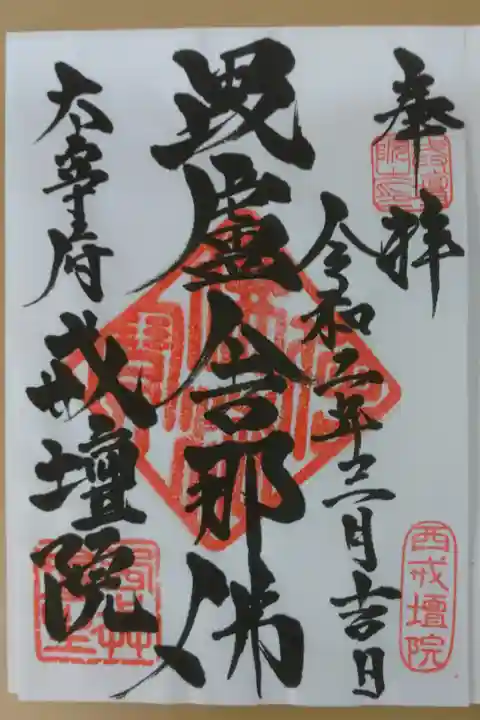 奉拝
令和二年三月吉日
毘盧舎那佛
太宰府
戒壇院
西戒壇院